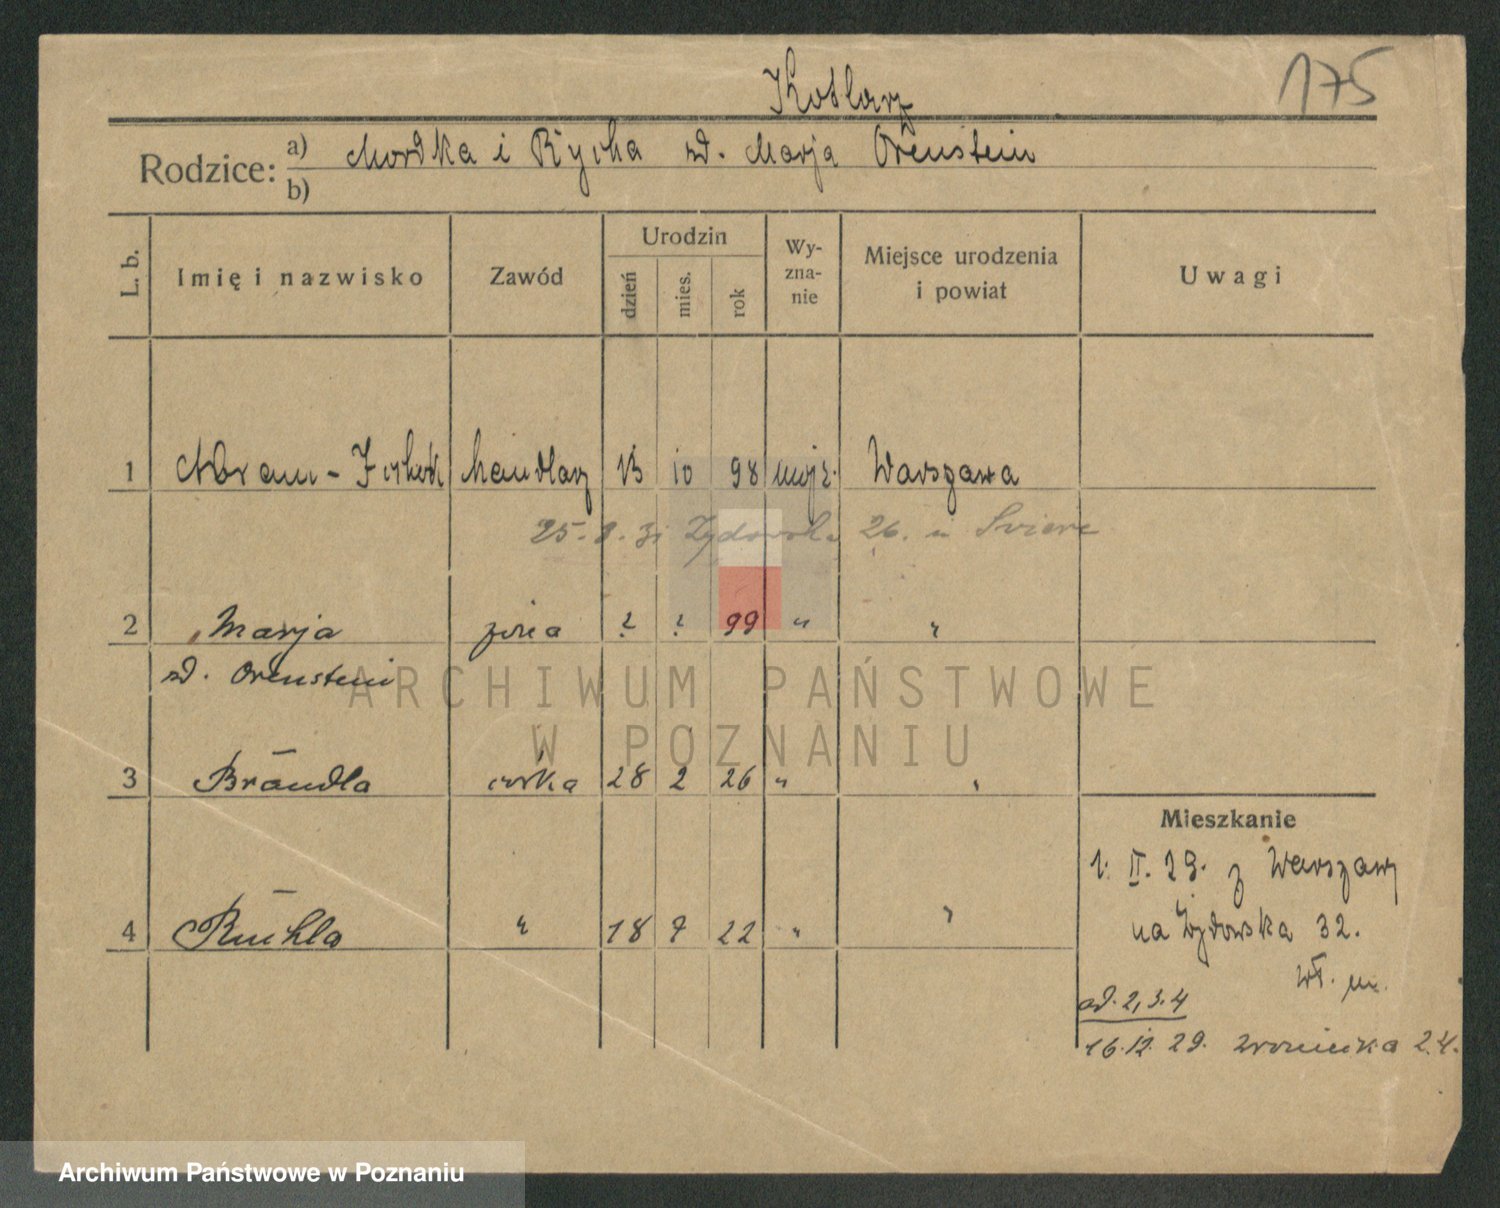 175
Kotlarz
Rodzice: a) Mordka i Rycha zd. Marja Orenstein
b)
L. b. Imię i nazwisko Zawód Urodzin dzień mies. rok Wy-zna-nie Miejsce urodzenia i powiat Uwagi
1 Abram - handlarz 13 10 98 mojż. Warszawa
25. 8. 31 Żydowska 26. u
2 Marja żona ? ? 99 " "
zd. Orenstein
ARCHIWUM PAŃSTWOWE
W POZNANIU
3 Brandla córka 28 2 26 " "
Mieszkanie
1. II. 29. z Warszawy
4 Ruchla " 18 7 22 " "
na Żydowska 32.
wł. m.
od. 2, 3. 4
16. 12. 29. Wroniecka 24.
Archiwum Państwowe w Poznaniu